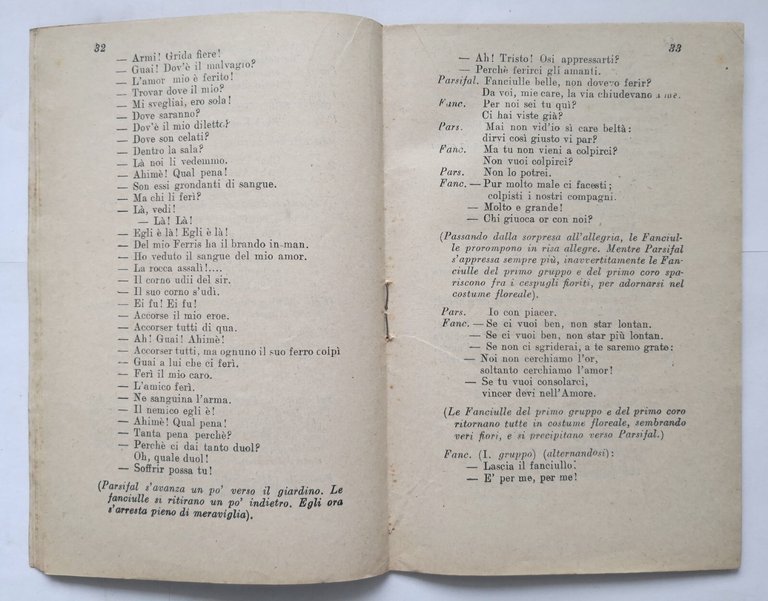 32
— Armi! Grida fiere!
— Guai! Dov'è il malvagio?
— L'amor mio è ferito!
— Trovar dove il mio?
— Mi svegliai, ero sola!
— Dove saranno?
— Dov'è il mio diletto?
— Dove son celati?
— Dentro la sala?
— Là noi li vedemmo.
— Ahimè! Qual pena!
— Son essi grondanti di sangue.
— Ma chi li ferì?
— Là, vedi!
— Là! Là!
— Egli è là! Egli è là!
— Del mio Ferris ha il brando in man.
— Ho veduto il sangue del mio amor.
— La rocca assalì!....
— Il corno udii del sir.
— Il suo corno s'udì.
— Ei fu! Ei fu!
— Accorse il mio eroe.
— Accorser tutti di qua.
— Ah! Guai! Ahimè!
— Accorser tutti, ma ognuno il suo ferro colpì
— Guai a lui che ci ferì.
— Ferì il mio caro.
— L'amico ferì.
— Ne sanguina l'arma.
— Il nemico egli è!
— Ahimè! Qual pena!
— Tanta pena perchè?
— Perchè ci dai tanto duol?
Oh, quale duol!
— Soffrir possa tu!
(Parsifal s'avanza un po' verso il giardino. Le
fanciulle si ritirano un po' indietro. Egli ora
s'arresta pieno di meraviglia).
33
— Ah! Tristo! Osi appressarti?
— Perchè ferirci gli amanti.
Parsifal. Fanciulle belle, non dovevo ferir?
Da voi, mie care, la via chiudevano a me.
Fanc. Per noi sei tu quì?
Ci hai viste già?
Pars. Mai non vid'io sì care beltà:
dirvi così giusto vi par?
Fanc. Ma tu non vieni a colpirci?
Non vuoi colpirci?
Pars. Non lo potrei.
Fanc. — Pur molto male ci facesti;
colpisti i nostri compagni.
— Molto e grande!
— Chi giuoca or con noi?
(Passando dalla sorpresa all'allegria, le Fanciul-
le prorompono in risa allegre. Mentre Parsifal
s'appressa sempre più, inavvertitamente le Fan-
ciulle del primo gruppo e del primo coro spa-
riscono fra i cespugli fioriti, per adornarsi nel
costume floreale).
Pars. Io con piacer.
Fanc. — Se ci vuoi ben, non star lontan.
— Se ci vuoi ben, non star più lontan.
— Se non ci sgriderai, a te saremo grate:
— Noi non cerchiamo l'or,
soltanto cerchiamo l'amor!
— Se tu vuoi consolarci,
vincer devi nell'Amore.
(Le Fanciulle del primo gruppo e del primo coro
ritornano tutte in costume floreale, sembrando
veri fiori, e si precipitano verso Parsifal.)
Fanc. (I. gruppo) (alternandosi):
— Lascia il fanciullo!
— E' per me, per me!